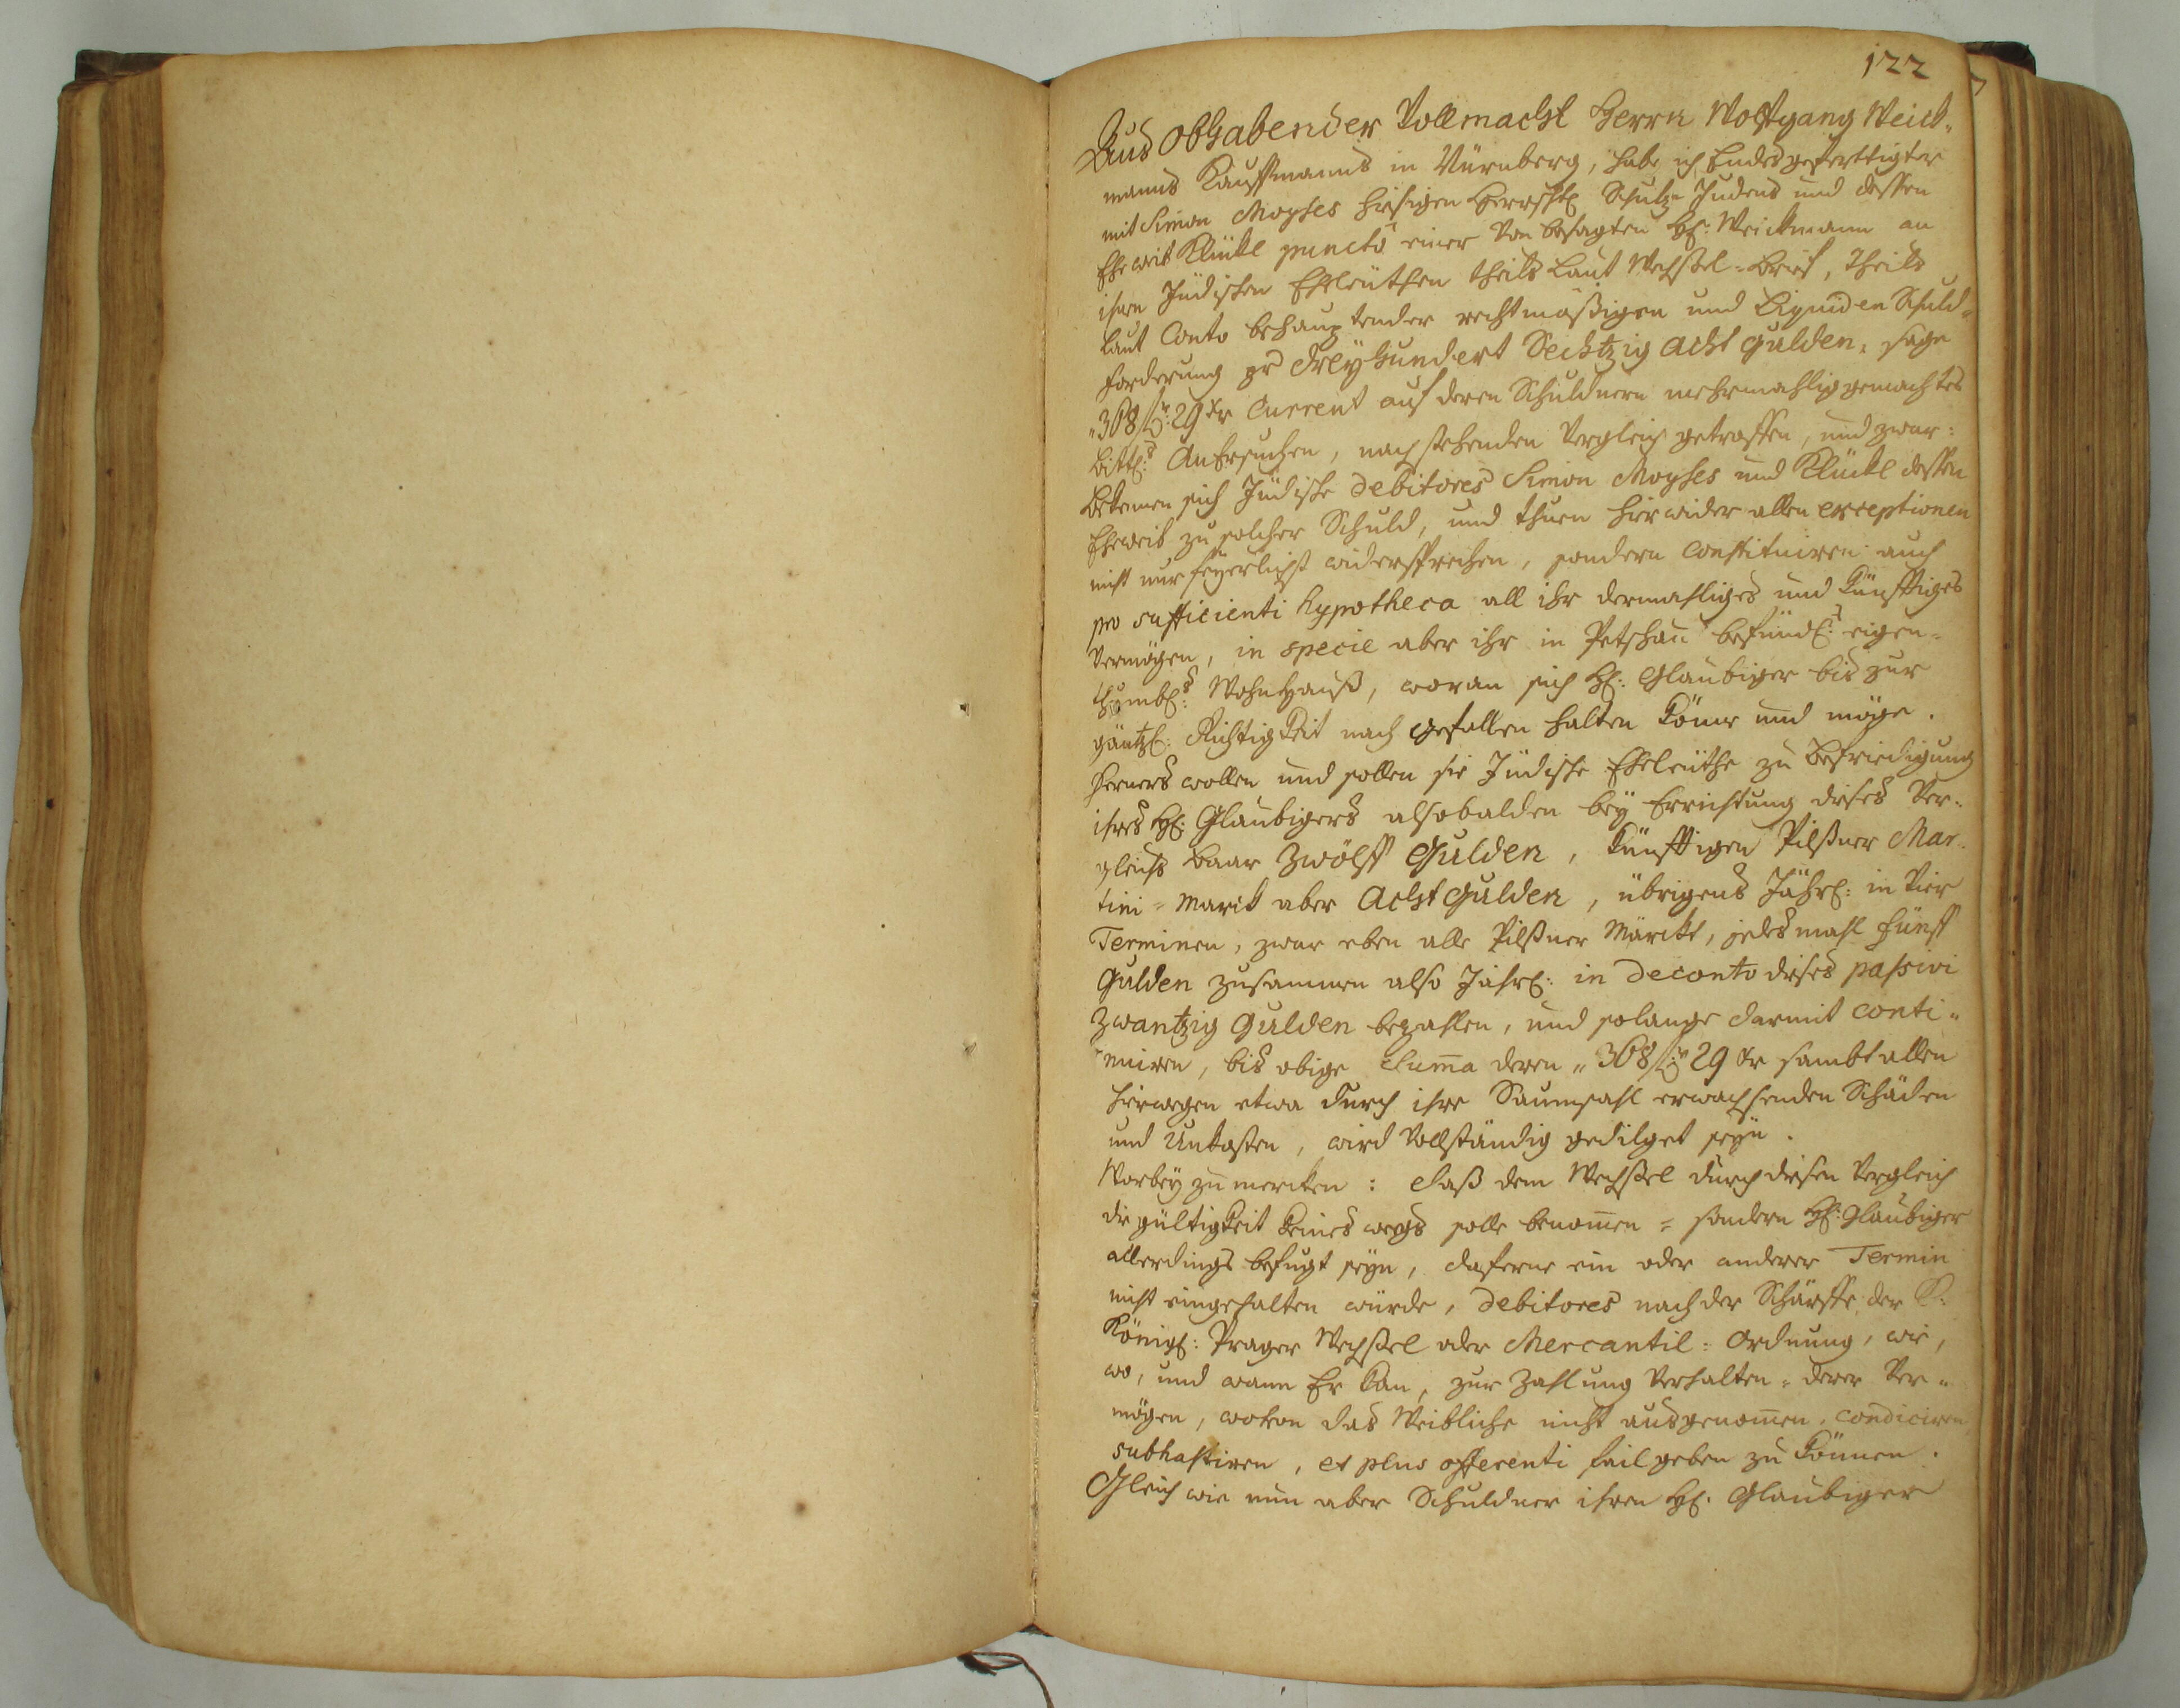 122
Aus obhabender Vollmacht Herrn Wolfgang Weick-
manns Kauffmanns in Nürnberg, habe ich Endesgeferttigter
mit Simon Moyses hiesigen Herrschftl Schutz-Judens und dessen
Eheweib Klückl puncto einer von besagten H: Weickmann an
ihnen Jüdischen Eheleüthen theils laut Wechßel-Brief, theils
laut Conto behauptender rechtmäßigen und Liquiden Schuld-
forderung pr dreyhundert Sechtzig acht gulden, sage
"368 f: 29 xr Current auf deren Schuldnern mehrmahlig gemachtes
bittl: Anersuchen, nachstehenden Vergleich getroffen, und zwar:
Bekennen sich Jüdische debitores Simon Moyses und Klückl dessen
Eheweib zu solcher Schuld, und thuen hierwider allen exceptionen
nicht nur feyerlichst widersprechen, sondern constituiren auch
pro sufficienti hypotheca all ihr dermahliges und künfftiges
Vermögen, in specie aber ihr in Petschau befindl: eigen-
thumbl: Wohnhauß, woran sich H: Glaubiger bis zur
gäntzl: Richtigkeit nach gefallen halten könne und möge.
Ferners wollen und sollen sie Jüdische Eheleüthe zu befriedigung
ihres H: Glaubigers alsobalden bey Errichtung dieses Ver-
gleichs baar Zwölff Gulden, künfftigen Pilßner Mar-
tini-Marck aber Acht Gulden, übrigens Jährl: in Vier
Terminen, zwar eben alle Pilßner Märckt, jedesmahl fünff
Gulden zusammen also Jährl: in deconto dieses passivi
Zwantzig Gulden bezahlen, und solange darmit conti-
nuiren, bis obige Summa deren "368 f: 29 xr sambt allen
hierwegen etwa durch ihre Saumsahl erwachsenden Schäden
und Unkosten, wird Vollständig gedilget seyn.
Worbey zu mercken: daß dem Wechßel durch diesen Vergleich
die gültigkeit keineswegs solle benommen - sondern H: Glaubiger
allerdings befugt seyn, daferne ein oder anderer Termin
nicht eingehalten würde, debitores nach der Schärffe der K:
Königl: Prager Wechßel oder Mercantil-Ordnung, wie,
wo, und wann Er kan, zur Zahlung Verhalten - derer Ver-
mögen, wovon das Weibliche nicht ausgenommen, condiciren
subhastiren, et plus offerenti fail geben zu können.
Gleich wie nun aber Schuldner ihren H: Glaubiger